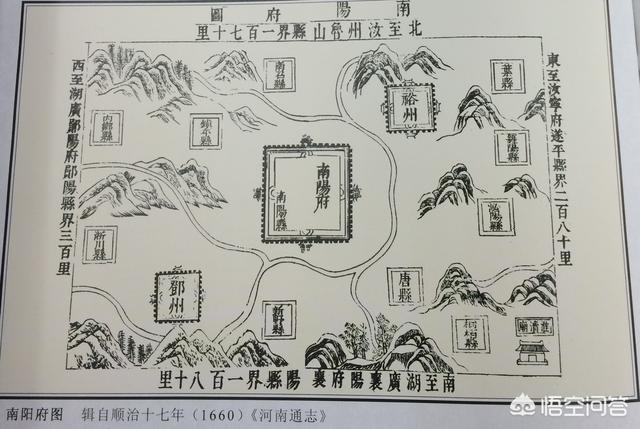 南陽府圖
北至汝州魯山縣界一百七十里
東至汝寧府遂平縣界二百八十里
西至湖廣鄖陽府鄖陽縣界三百里
南召縣
葉縣
裕州
內鄉縣
鎮平縣
舞陽縣
南陽府
南陽縣
泌陽縣
淅川縣
唐縣
鄧州
新野縣
桐柏縣
淮瀆廟
南至湖廣襄陽府襄陽縣界一百八十里
南阳府图 辑自顺治十七年（1660）《河南通志》
悟空问答